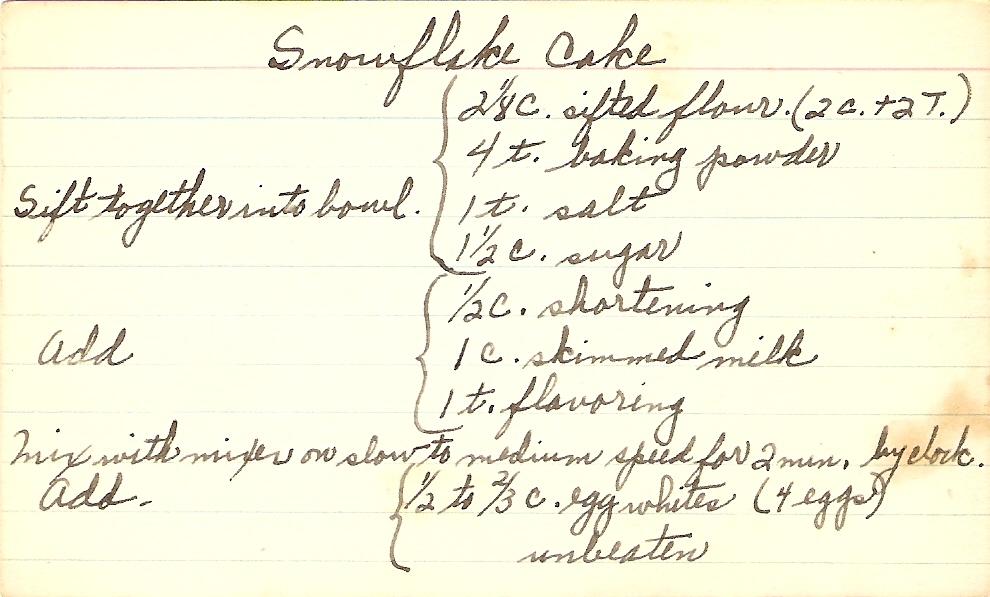 Snowflake Cake
2 1/8 c. sifted flour. (2 c. + 2 T.)
4 t. baking powder
Sift together into bowl. 1 t. salt
1 1/2 c. sugar
1/2 c. shortening
Add 1 c. skimmed milk
1 t. flavoring
Mix with mixer on slow to medium speed for 2 min. by clock.
Add - 1/2 to 2/3 c. egg whites (4 eggs)
unbeaten